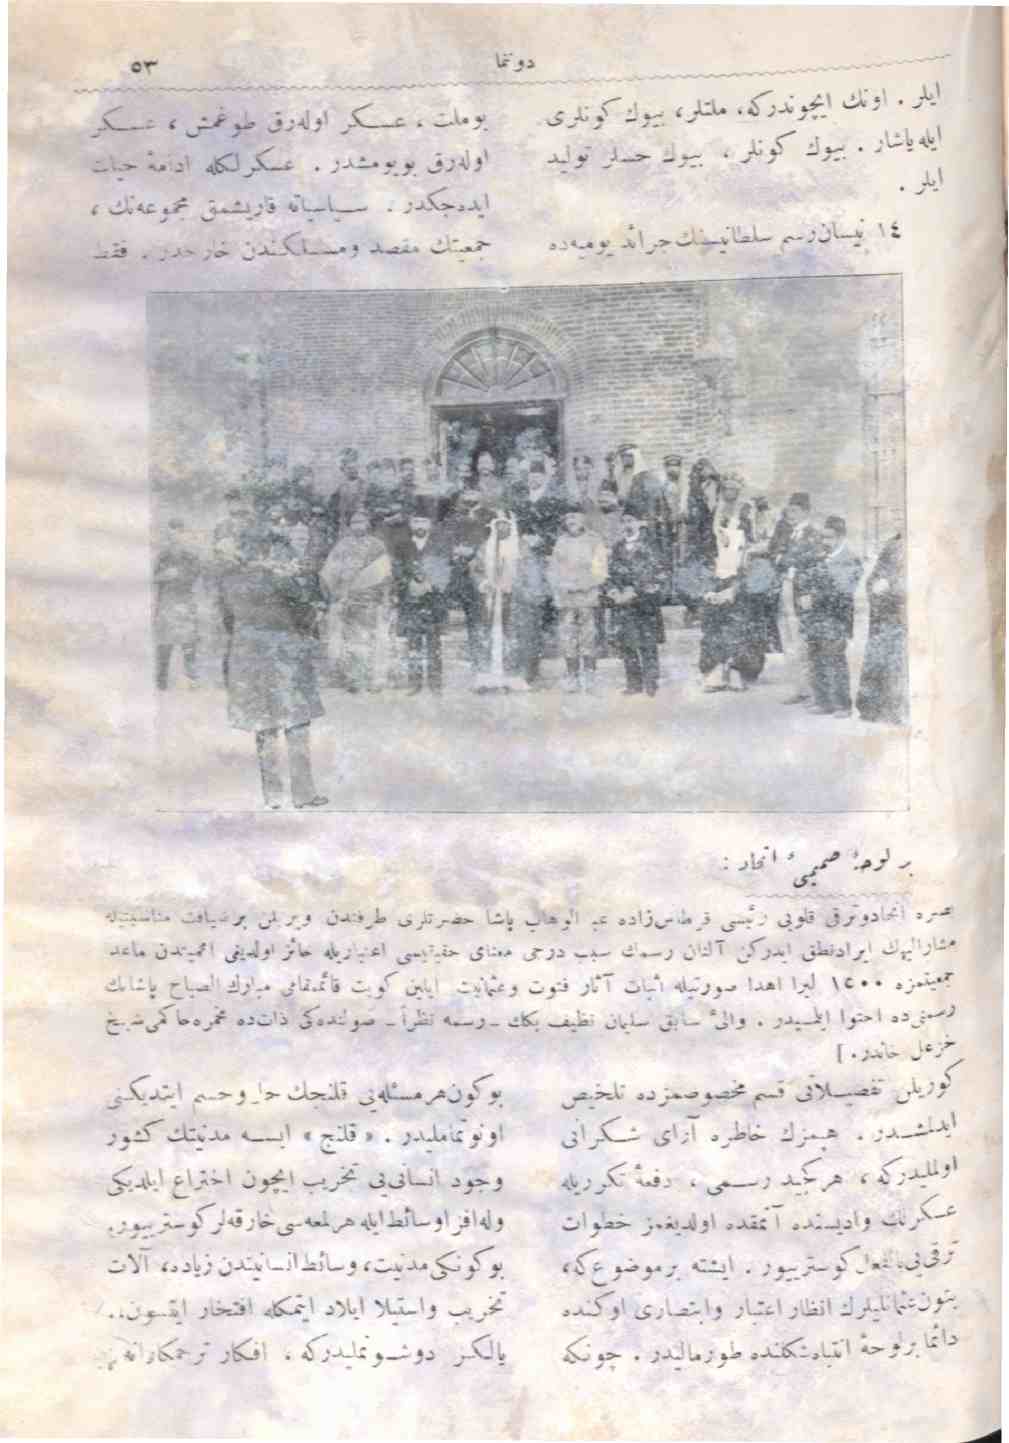 دوتنما
٥٣
ايلر . اونك ايچوندركه، ملتلر، بيوك كونلرى
ايله ياشار . بيوك كونلر ، بيوك حسلر توليد
ايلر .
١٤ نيسان رسم سلطانيسنك جرائد يوميه ده
بوملت ، عسكر اوله رق طوغمش ، عسكر
اوله رق بويومشدر . عسكرلكله ادامهٔ حيات
ايده جكدر . سياسياته قاريشمق مجموعه نك ،
جمعيتك مقصد ومسلكندن خارجدر . فقط
بر لوحهٔ صميمئ اتحاد :
بصره اتحادوترقى قلوبى رئيسى قرطاس زاده عبد الوهاب پاشا حضرتلرى طرفندن ويريلن بر ضيافت مناسبتيله
مشاراليهك ايراد نطق ايدركن آلنان رسمك سبب درجى معناى حقيقيسى اعتباريله حائز اولديغى اهميتدن ماعدا
جمعيتمزه ١٢٠٠ ليرا اهدا صورتيله اثبات آثار فتوت وعثمانيت ايلين كويت قائمقامى مبارك الصباح پاشانك
رسمنى ده احتوا ايلمسيدر . والئ سابق سليمان نظيف بكك ـ رسمه نظراً ـ صولنده كى ذات ده محمره حاكمى شيخ
خزعل خاندر . ]
كوريلن تفصيلاتى قسم مخصوصمزده تلخيص
ايدلمشدر . هپمزك خاطره آراى شكرانى
اولمليدركه ، هر كچيد رسمى ، دفعهٔ تكرريله
عسكرلك واديسنده آتمقده اولديغمز خطوات
ترقى يى بالفعل كوستريبور . ايشته بر موضوع كه،
بتون عثمانليلرك انظار اعتبار وابتصارى اوكنده
دائما بر لوحهٔ انتباه شكلنده طورماليدر . چونكه
بوكون هر مسئله يى قلنجك حل وحسم ايتديكنى
اونوتمامليدر . « قلنج » ايسه مدنيتك كشور
وجود انسانى يى تخريب ايچون اختراع ايلديكى
وله افزا وسائط ايله هر لمعه سى خارقه لر كوستريبور.
بوكونكى مدنيت، وسائط انسانيتدن زياده، آلات
تخريب واستيلا ايلاد ايتمكله افتخار ايتسون..
يالكز دوشونمليدركه ، افكار ترحمكارانه